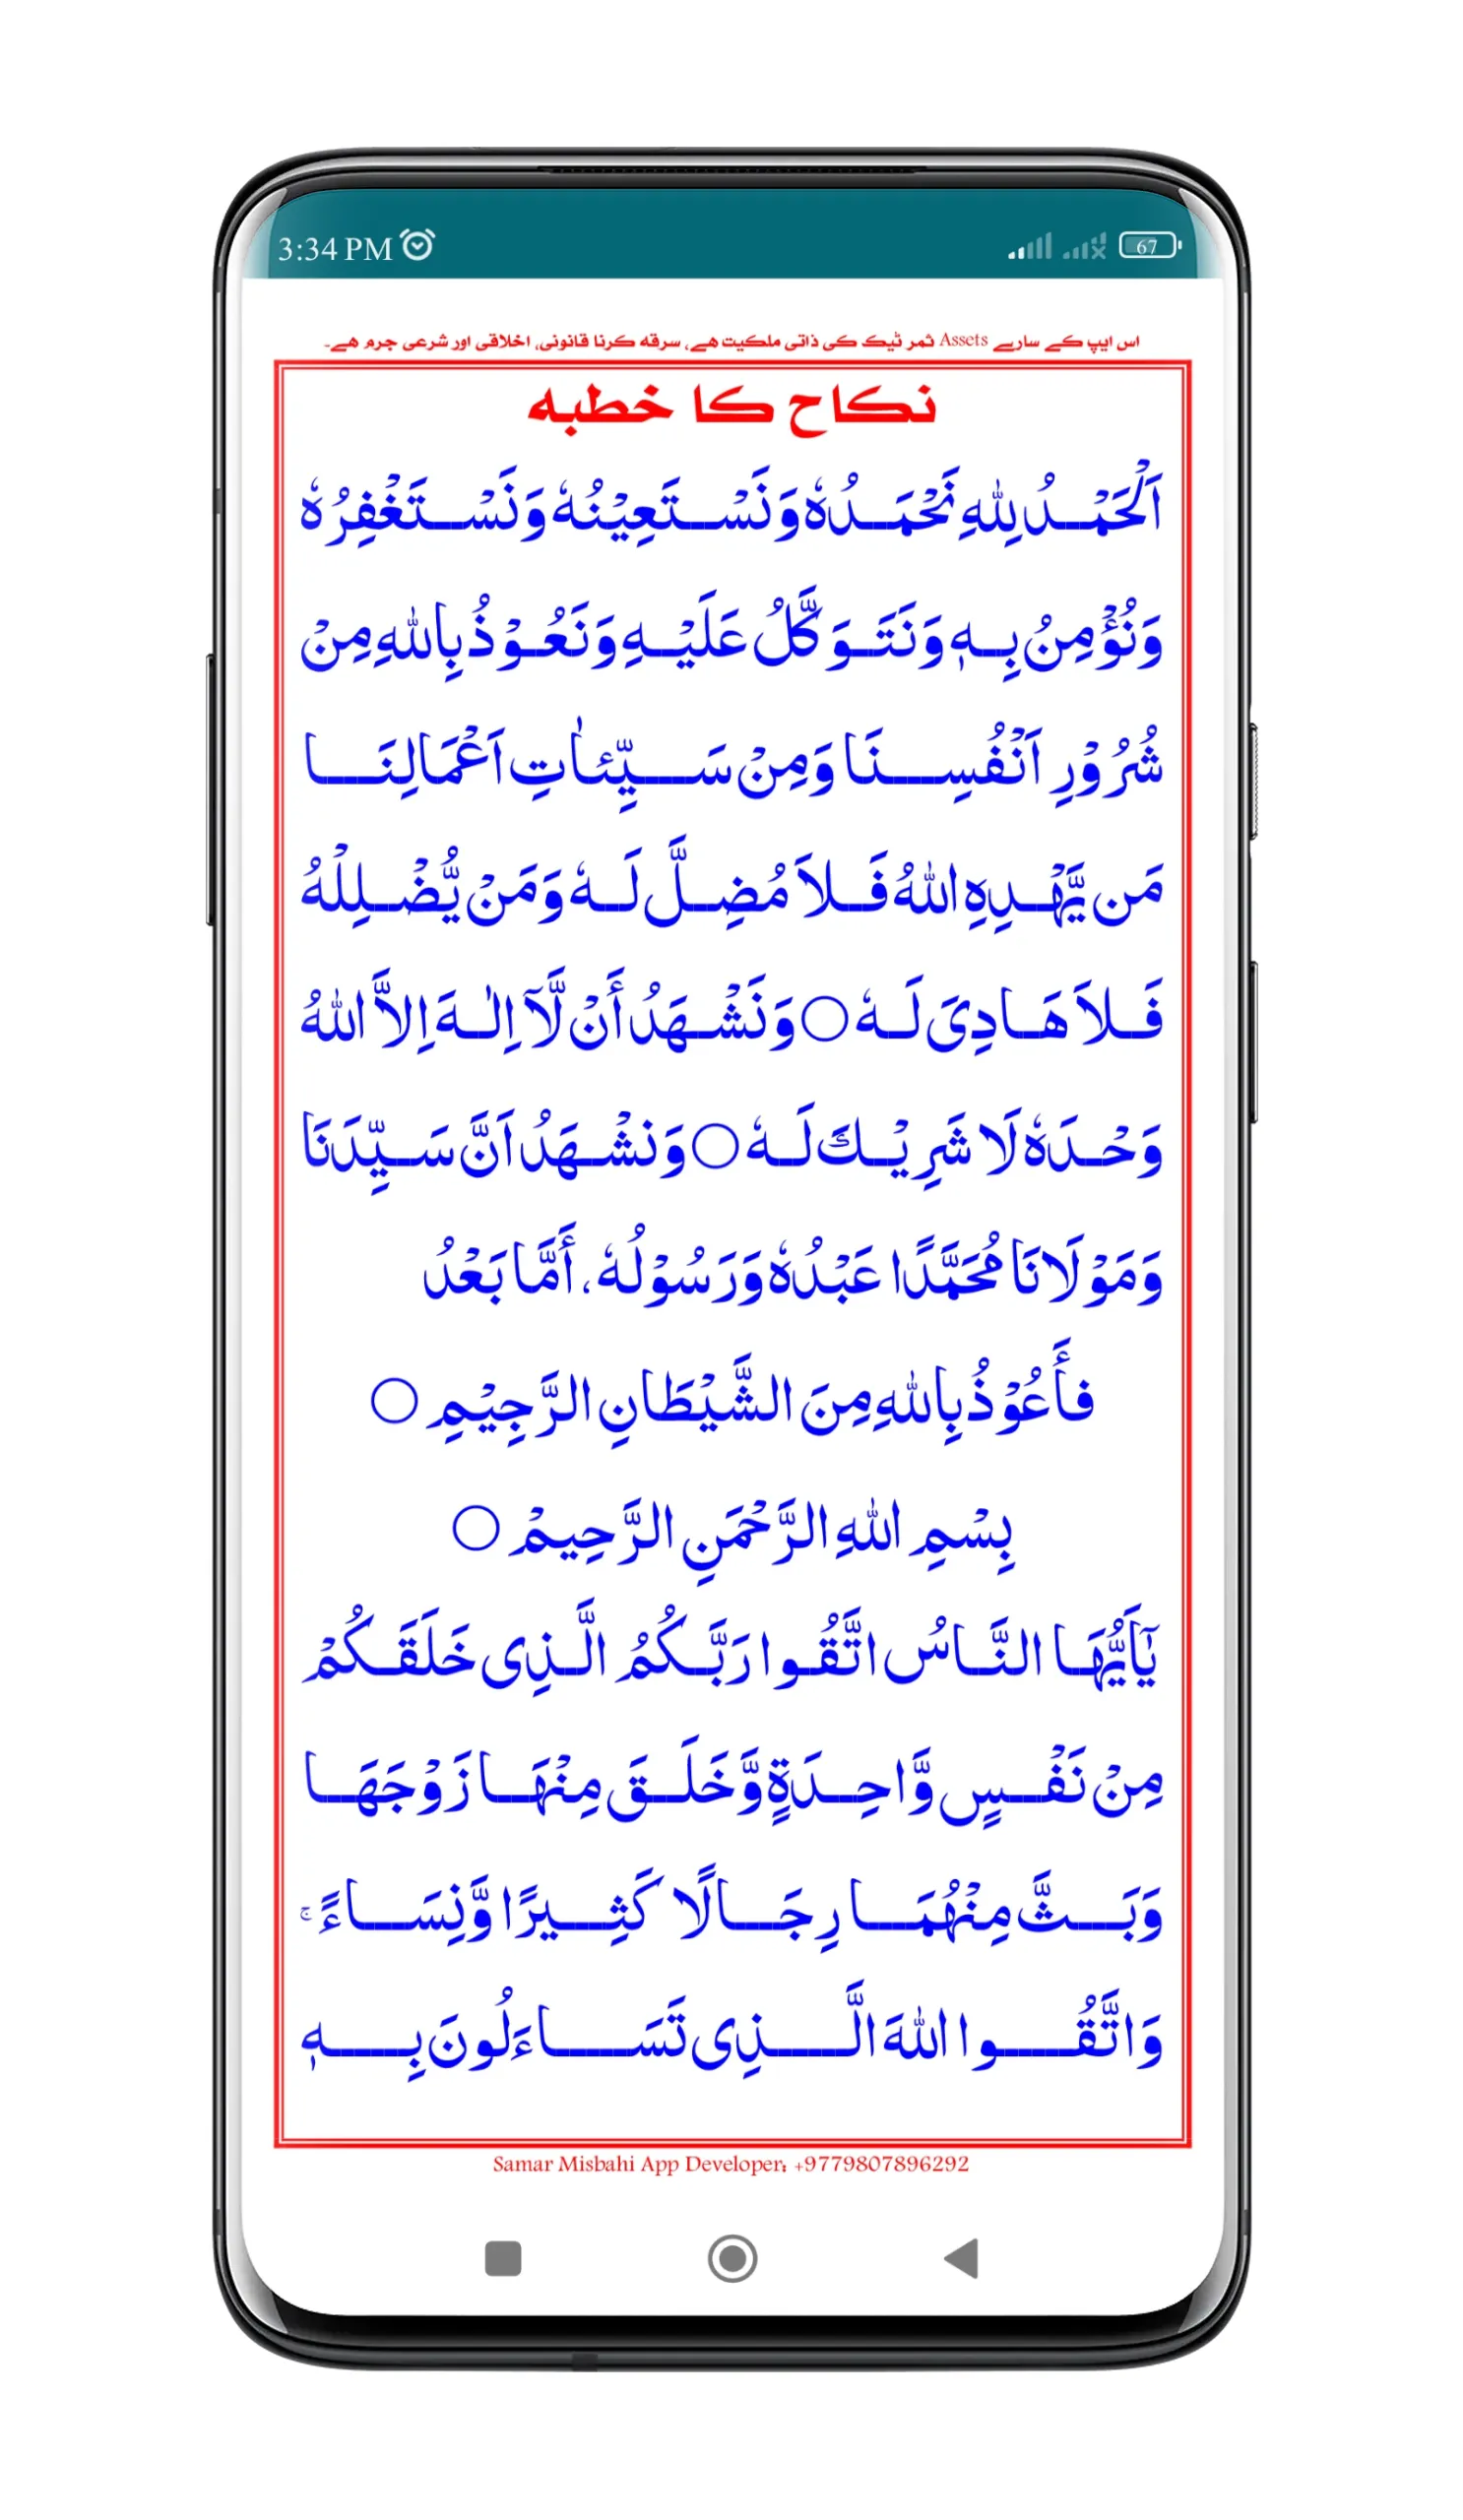 3:34 PM
67
اس ایپ کے سارے Assets ثمر ٹیک کی ذاتی ملکیت ہے، سرقہ کرنا قانونی، اخلاقی اور شرعی جرم ہے۔
نکاح کا خطبہ
اَلْحَمْدُ لِلّٰهِ نَحْمَدُهٗ وَنَسْتَعِيْنُهٗ وَنَسْتَغْفِرُهٗ
وَنُؤْمِنُ بِهٖ وَنَتَوَكَّلُ عَلَيْهِ وَنَعُوْذُ بِاللّٰهِ مِنْ
شُرُوْرِ اَنْفُسِنَا وَمِنْ سَيِّئٰاتِ اَعْمَالِنَا
مَن يَّهْدِهِ اللّٰهُ فَلاَ مُضِلَّ لَهٗ وَمَنْ يُّضْلِلْهُ
فَلاَ هَادِىَ لَهٗ ○ وَنَشْهَدُ أَنْ لَّآ اِلٰهَ اِلاَّ اللّٰهُ
وَحْدَهٗ لَا شَرِيْكَ لَهٗ ○ وَنشْهَدُ اَنَّ سَيِّدَنَا
وَمَوْلَانَا مُحَمَّدًا عَبْدُهٗ وَرَسُوْلُهٗ، أَمَّا بَعْدُ
فأَعُوْذُ بِاللّٰهِ مِنَ الشَّيْطَانِ الرَّجِيْمِ ○
بِسْمِ اللّٰهِ الرَّحْمَنِ الرَّحِيمْ ○
يٰٓاَيُّهَا النَّاسُ اتَّقُوا رَبَّكُمُ الَّذِى خَلَقَكُمْ
مِنْ نَفْسٍ وَّاحِدَةٍ وَّخَلَقَ مِنْهَا زَوْجَهَا
وَبَثَّ مِنْهُمَا رِجَالًا كَثِيرًا وَّنِسَاءً ۚ
وَاتَّقُوا اللّٰهَ الَّذِى تَسَاءَلُونَ بِهٖ
Samar Misbahi App Developer: +9779807896292